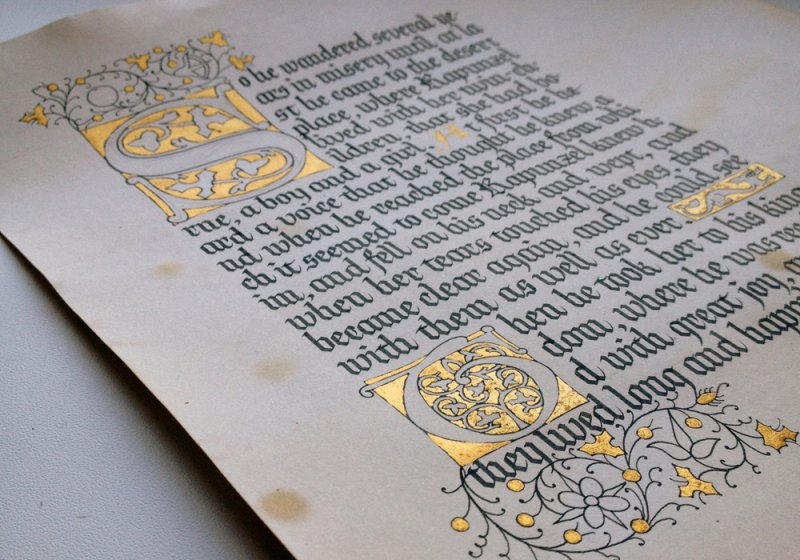 So he wandered several ye
ars in misery until at la
st he came to the desert
place, where Rapunzel
lived, with her twin-ch
ildren, that she had bo
rne, a boy and a girl. At first he he
ard a voice that he thought he knew a
nd when he reached the place from whi
ch it seemed to come Rapunzel knew h
im, and fell on his neck and wept, and
when her tears touched his eyes they
became clear again, and he could see
with them as well as ever
Then he took her to his king
dom, where he was
d with great joy,
they lived long and